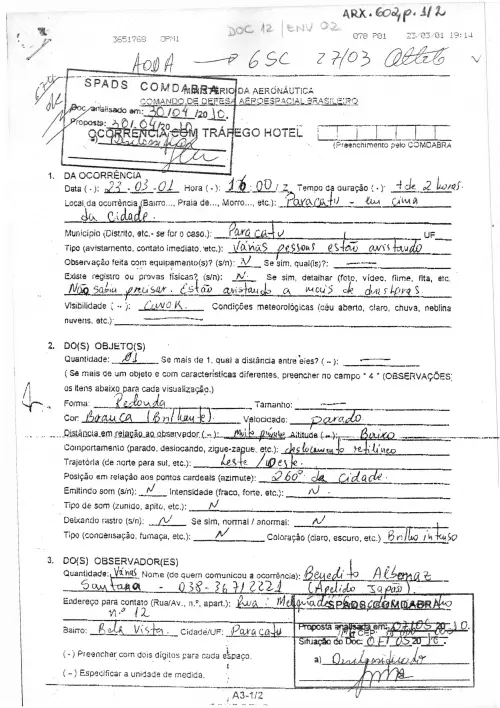 ARX. 602, p. 1/2
DOC 12 / ENV 02
3651768 078 P01 23/03/01 19:14
AODA → 6SC 27/03
SPADS COMDABRA
MINISTÉRIO DA AERONÁUTICA
COMANDO DE DEFESA AEROESPACIAL BRASILEIRO
Doc. analisado em: 30/04/2010
Proposta: 30/04/2010
a) Desclassificar
OCORRÊNCIA COM TRÁFEGO HOTEL
(Preenchimento pelo COMDABRA
1. DA OCORRÊNCIA
Data (-): 23.03.01 Hora (-): 16:00/Z Tempo da duração (-): + de 2 horas.
Local da ocorrência (Bairro..., Praia de..., Morro..., etc.): Paracatu - em cima
da cidade.
Município (Distrito, etc.- se for o caso.): Paracatu UF
Tipo (avistamento, contato imediato, etc.): Várias pessoas estão avistando
Observação feita com equipamento(s)? (s/n): N Se sim, qual(is)?:
Existe registro ou provas físicas? (s/n): N. Se sim, detalhar (foto, vídeo, filme, fita, etc.
Não sabia precisar. Estão avistando a mais de duas horas.
Visibilidade (~): CAVOK. Condições meteorológicas (céu aberto, claro, chuva, neblina
nuvens, etc.):
2. DO(S) OBJETO(S)
Quantidade: 01 Se mais de 1, qual a distância entre eles? (~):
( Se mais de um objeto e com características diferentes, preencher no campo " 4 " (OBSERVAÇÕES;
os itens abaixo para cada visualização.)
Forma: Redonda Tamanho:
Cor: Branca (Brilhante) Velocidade: parado
Distância em relação ao observador (~): Altitude (~): Baixo
Comportamento (parado, deslocando, zigue-zague, etc.): deslocamento retilíneo
Trajetória (de norte para sul, etc.): Leste / Oeste.
Posição em relação aos pontos cardeais (azimute): 260° da cidade.
Emitindo som (s/n): N Intensidade (fraco, forte, etc.): N.
Tipo de som (zunido, apito, etc.): N
Deixando rastro (s/n): N Se sim, normal / anormal: N
Tipo (condensação, fumaça, etc.): N Coloração (claro, escuro, etc.) Brilho intenso
3. DO(S) OBSERVADOR(ES)
Quantidade: Várias Nome (de quem comunicou a ocorrência): Benedito Albernaz
Santana - 038-36712221 (Apelido Japão).
Endereço para contato (Rua/Av., n.º, apart.): Rua:
n.º 12
SPADS COMDABRA
Bairro: Bela Vista. Cidade/UF: Paracatu CEP:
Proposta analisada em: 07/05 2010.
Situação do Doc: 07/05 2010.
a) Desclassificado
(-) Preencher com dois dígitos para cada espaço.
(~) Especificar a unidade de medida.
A3-1/2